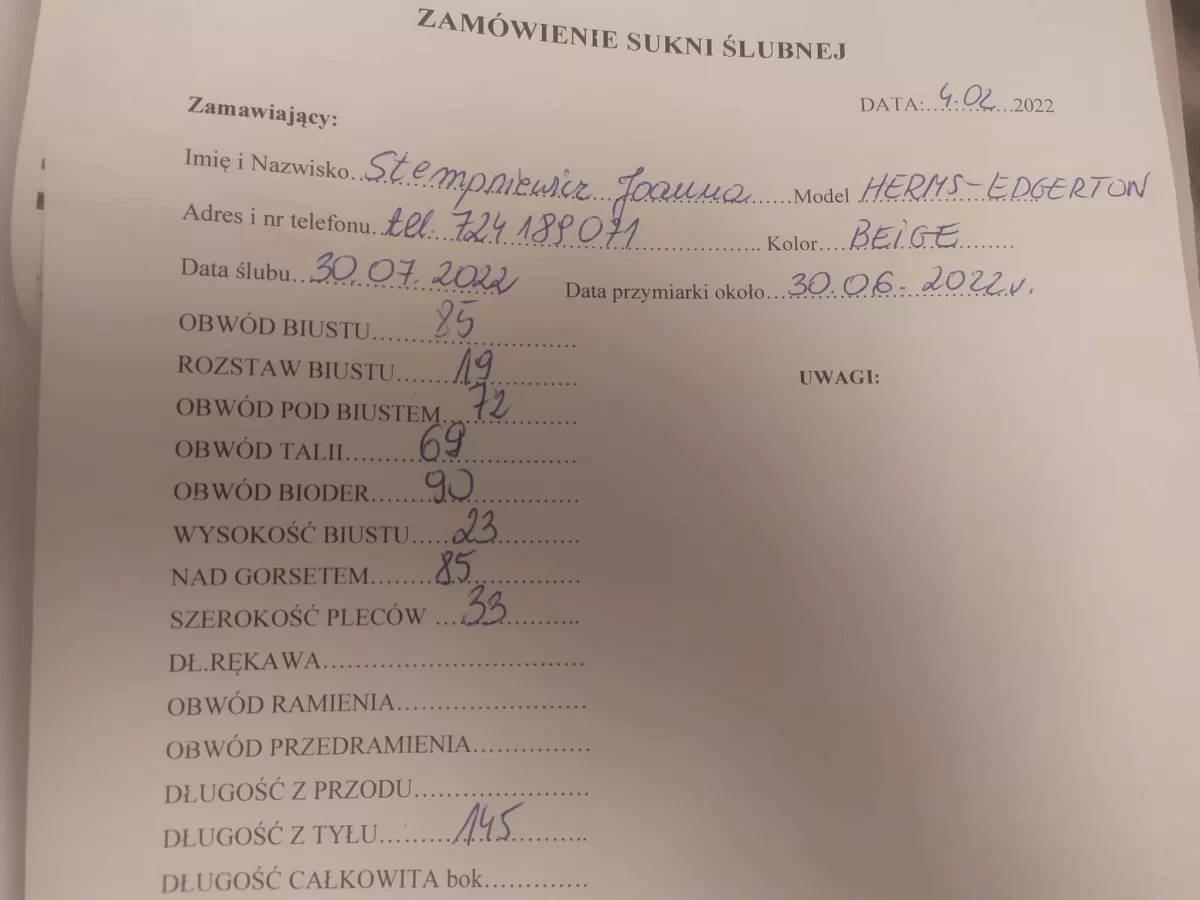 ZAMÓWIENIE SUKNI ŚLUBNEJ
DATA:...4.02...2022
Zamawiający:
Imię i Nazwisko...Stempniewicz Joanna......Model HERMS-EDGERTON
Adres i nr telefonu...tel. 724 189 071...Kolor....BEIGE........
Data ślubu...30.07.2022 Data przymiarki około...30.06.2022r.
OBWÓD BIUSTU...85...
ROZSTAW BIUSTU...19...
UWAGI:
OBWÓD POD BIUSTEM...72...
OBWÓD TALII...69...
OBWÓD BIODER...90...
WYSOKOŚĆ BIUSTU...23...
NAD GORSETEM...85...
SZEROKOŚĆ PLECÓW ...33...
DŁ.RĘKAWA...
OBWÓD RAMIENIA...
OBWÓD PRZEDRAMIENIA...
DŁUGOŚĆ Z PRZODU...
DŁUGOŚĆ Z TYŁU...145...
DŁUGOŚĆ CAŁKOWITA bok...